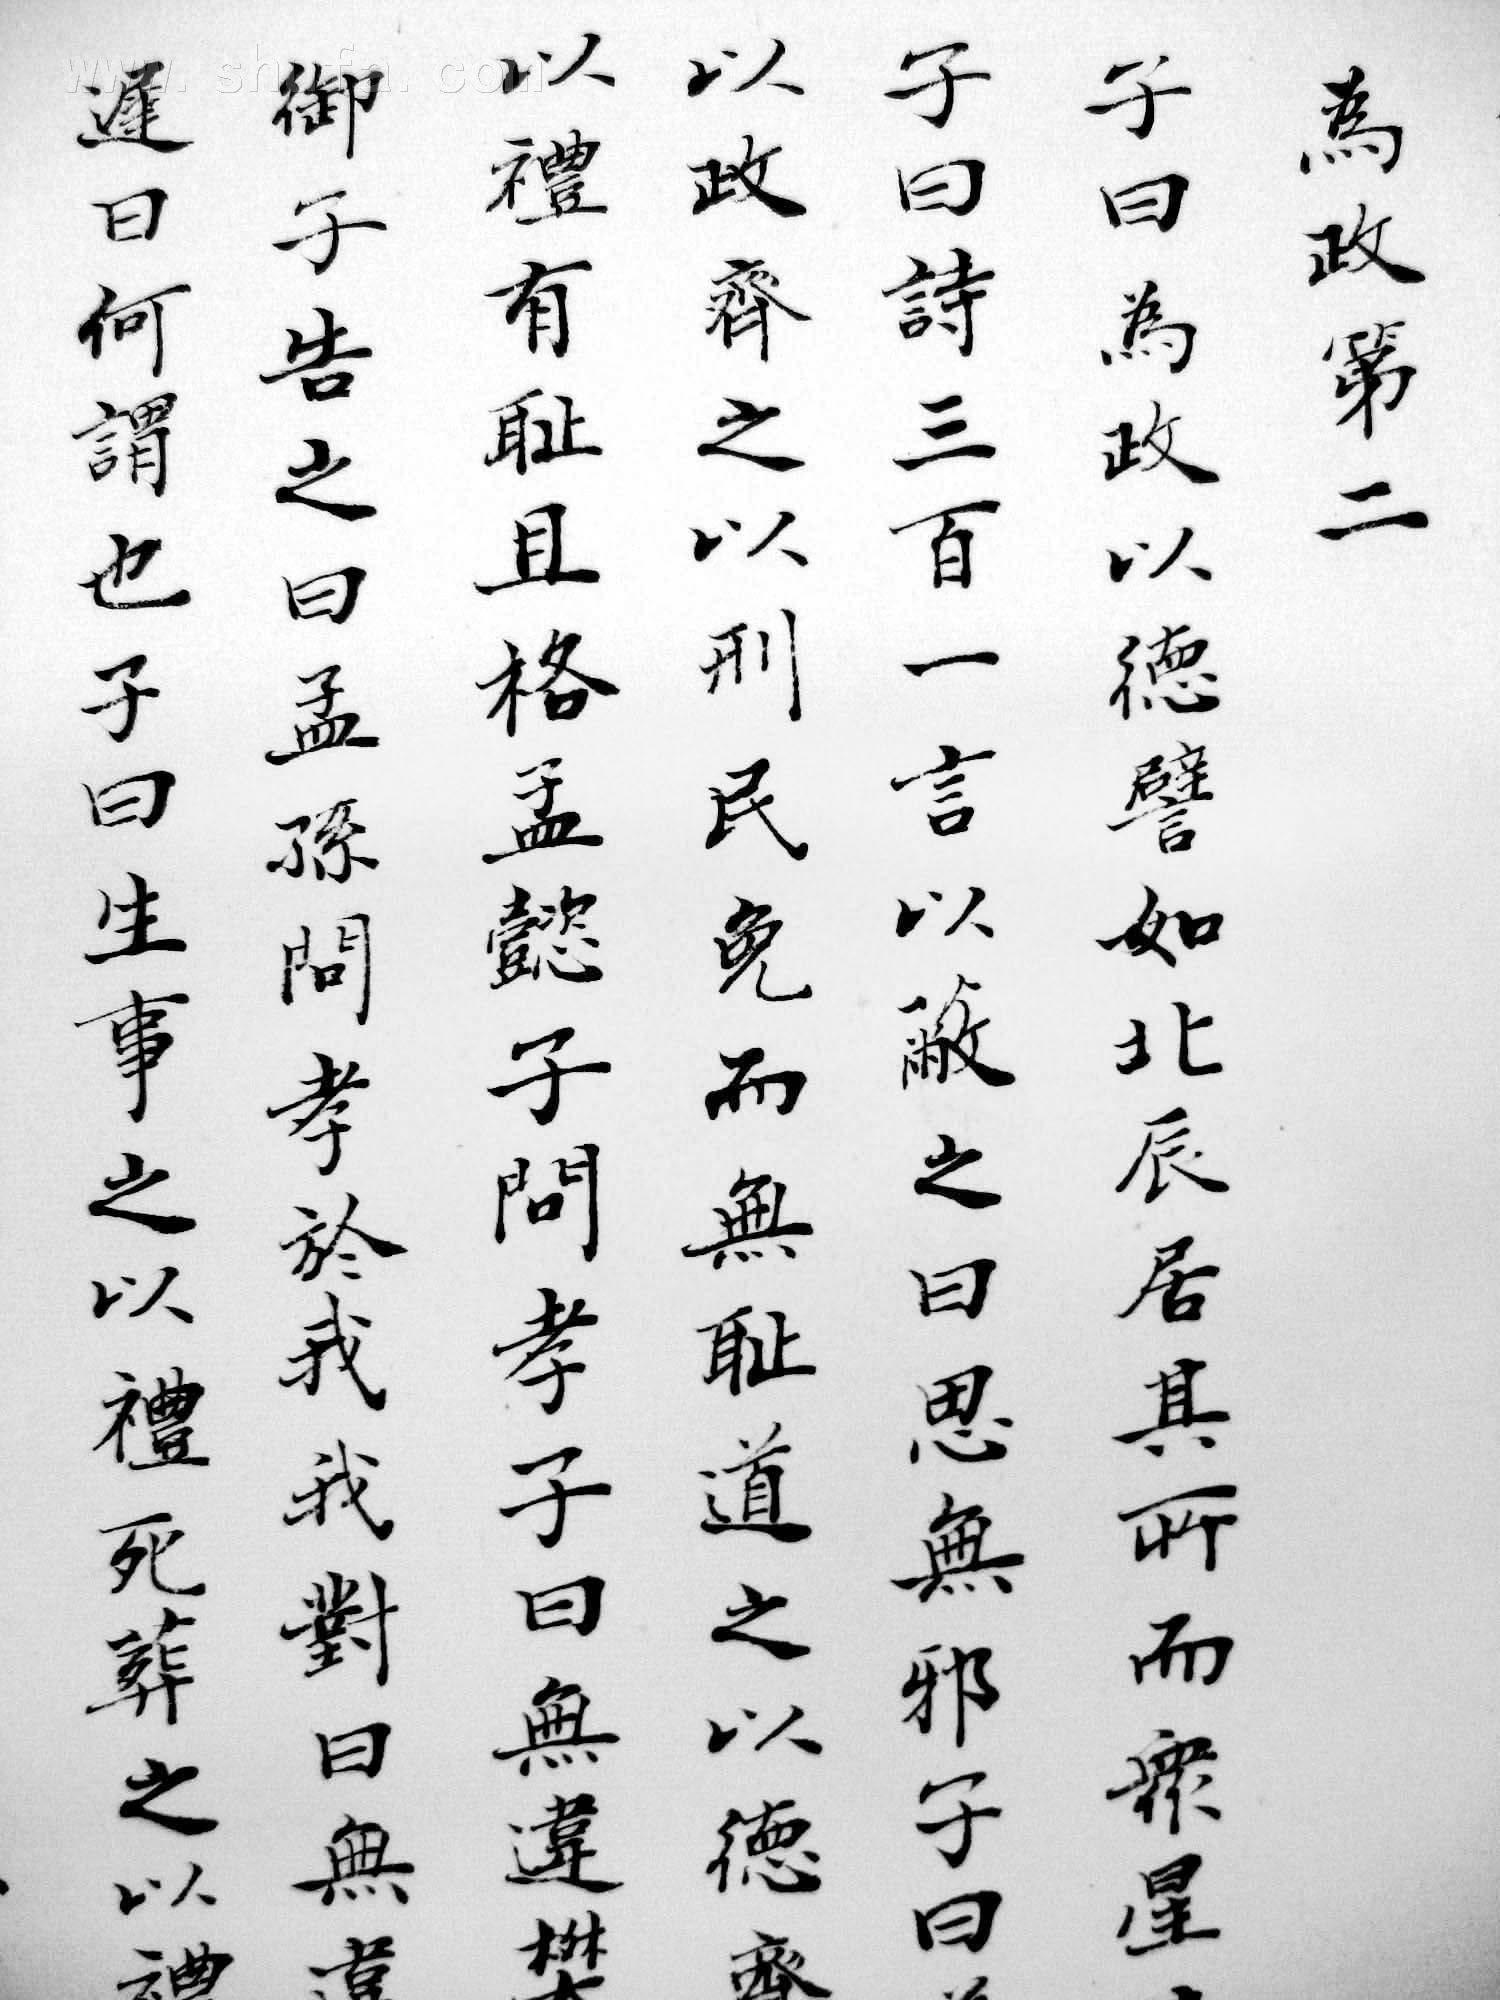 為政第二
子曰為政以德譬如北辰居其所而眾星
子曰詩三百一言以蔽之曰思無邪子曰
以政齊之以刑民免而無耻道之以德齊
以禮有耻且格孟懿子問孝子曰無違樊
御子告之曰孟孫問孝於我我對曰無違
遲曰何謂也子曰生事之以禮死葬之以禮